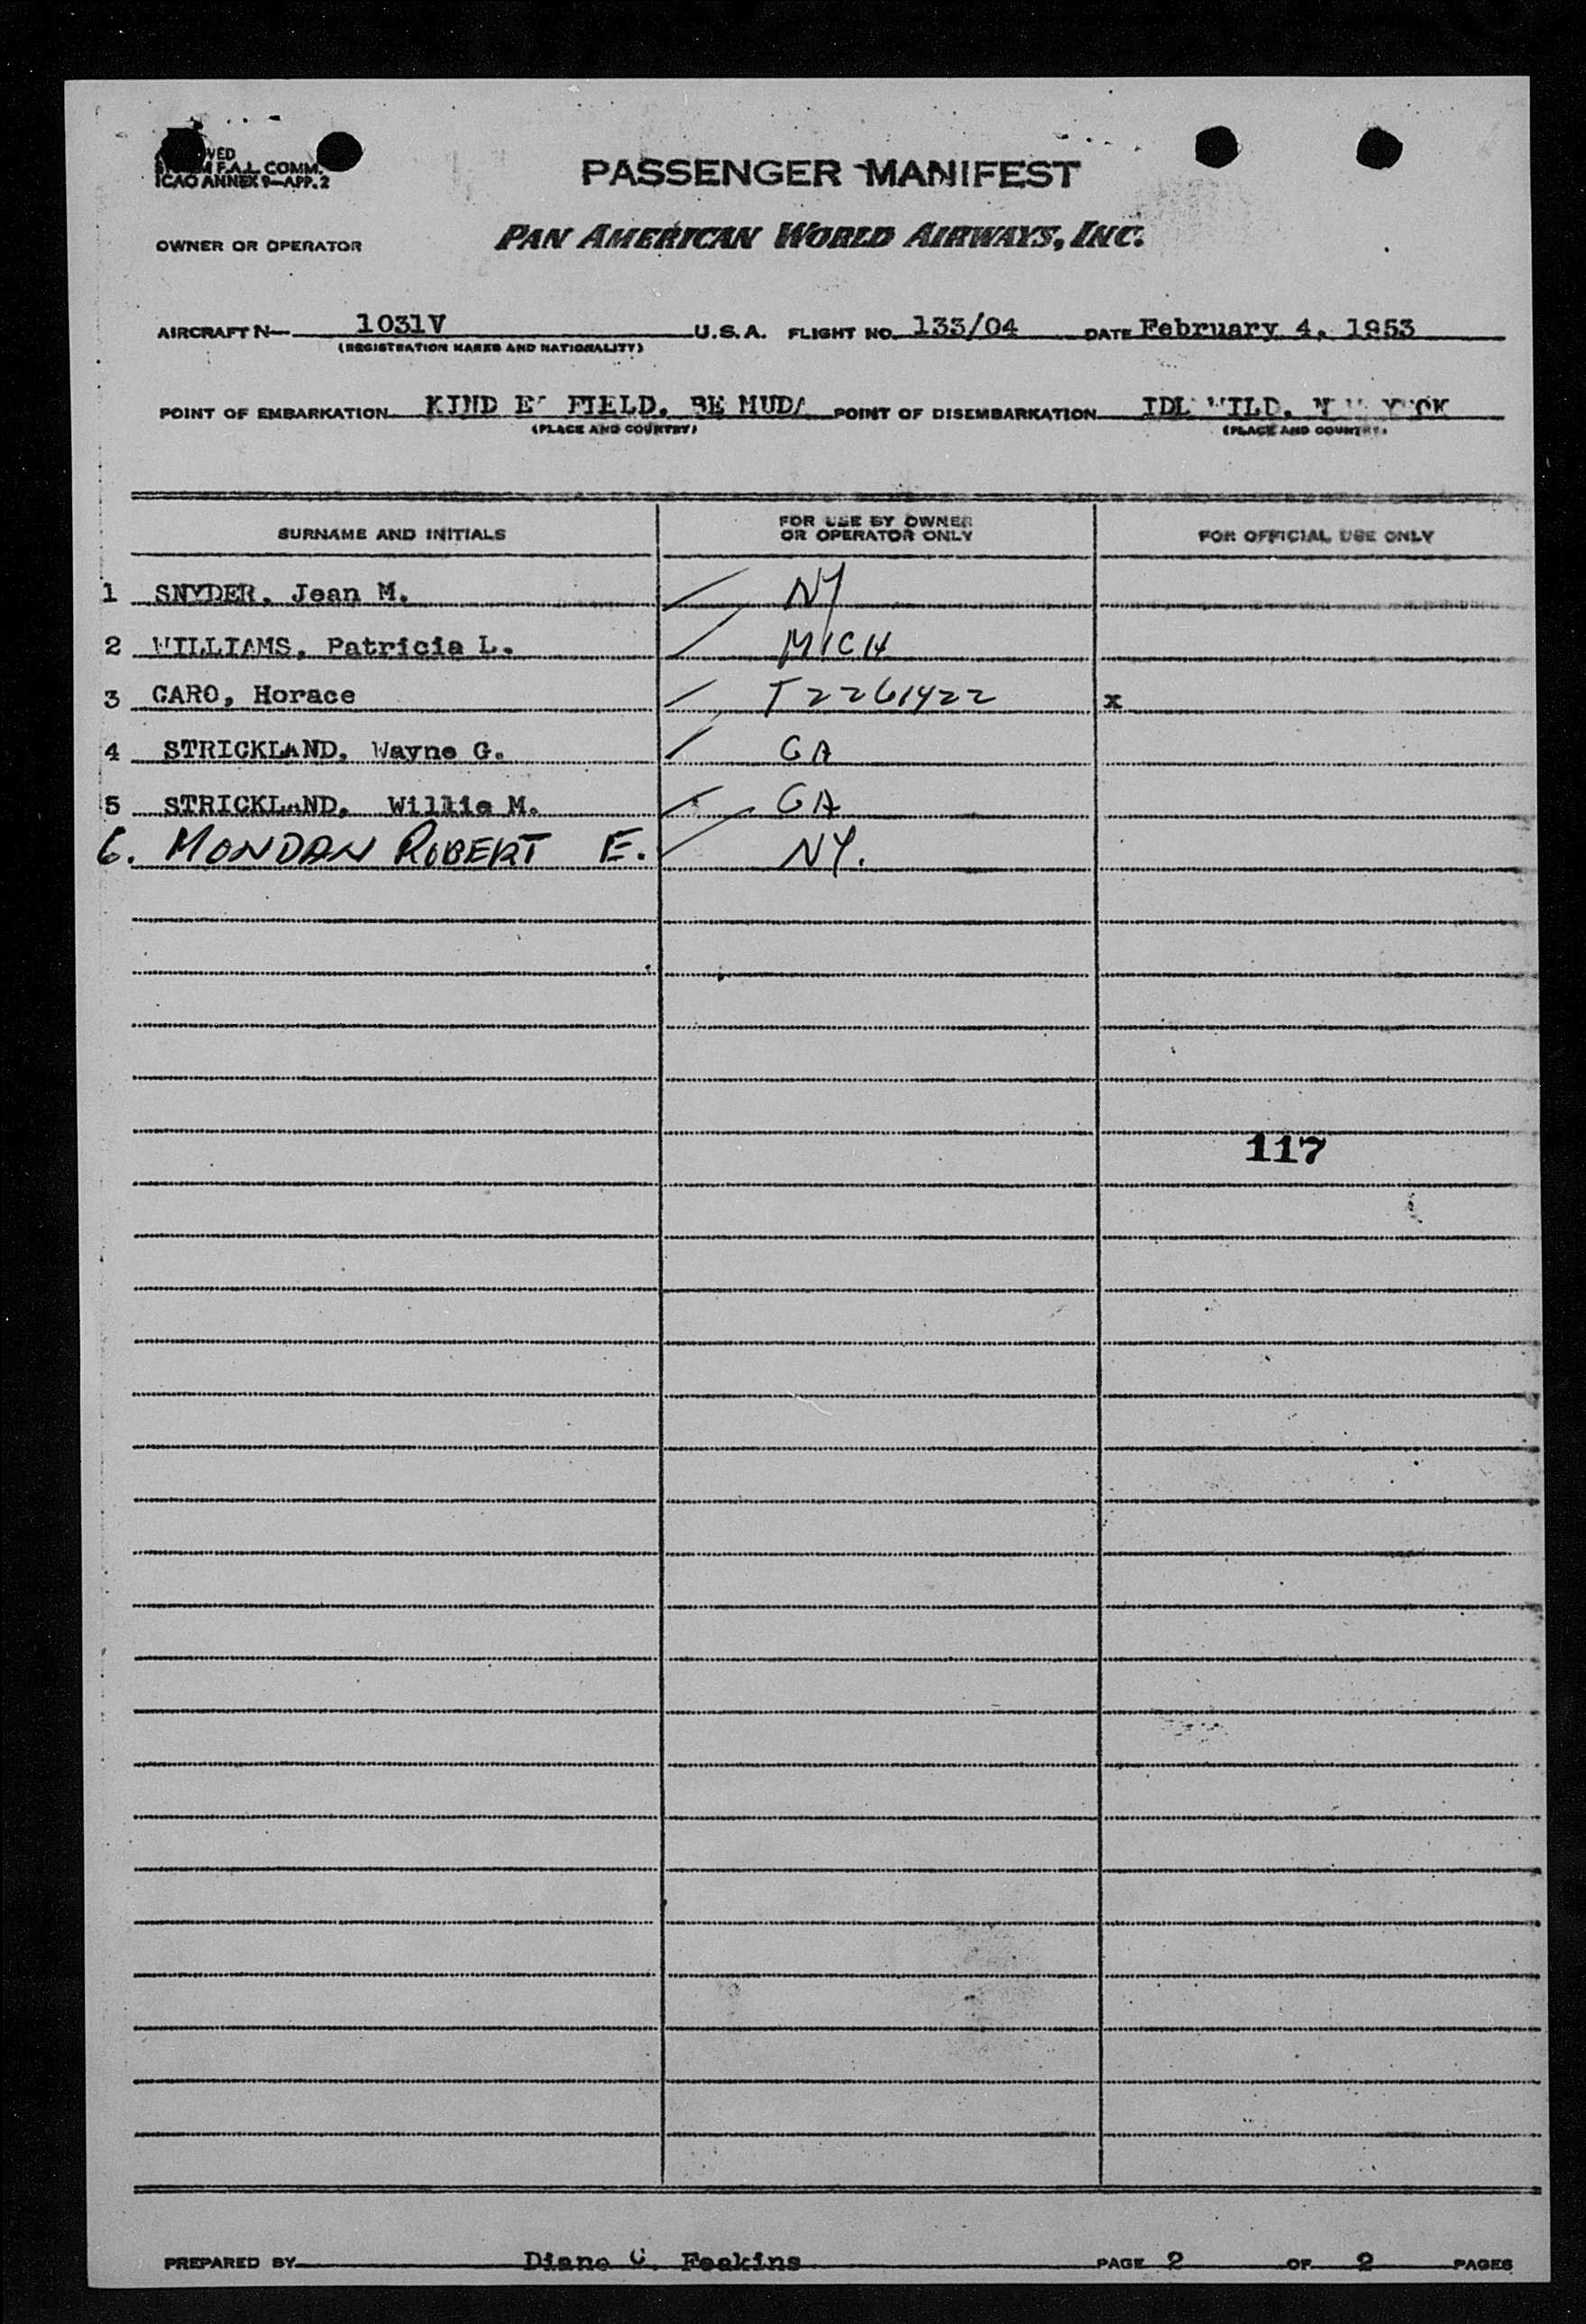 VED
F.A.L. COMM.
ICAO ANNEX 9—APP. 2
PASSENGER MANIFEST
OWNER OR OPERATOR
PAN AMERICAN WORLD AIRWAYS, INC.
AIRCRAFT N— 1031V U.S.A. FLIGHT NO. 133/04 DATE February 4, 1953
(REGISTRATION MARKS AND NATIONALITY)
POINT OF EMBARKATION KIND E FIELD, BE MUDA POINT OF DISEMBARKATION IDL WILD, N Y OK
(PLACE AND COUNTRY) (PLACE AND COUNTRY)
SURNAME AND INITIALS FOR USE BY OWNER OR OPERATOR ONLY FOR OFFICIAL USE ONLY
1 SNYDER, Jean M. NY
2 WILLIAMS, Patricia L. MICH
3 CARO, Horace T2261422 x
4 STRICKLAND, Wayne G. GA
5 STRICKLAND, Willie M. GA
6. MONDAN ROBERT E. NY.
117
PREPARED BY Diane Feakins PAGE 2 OF 2 PAGES